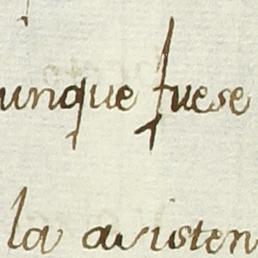 unque fuese
la asisten